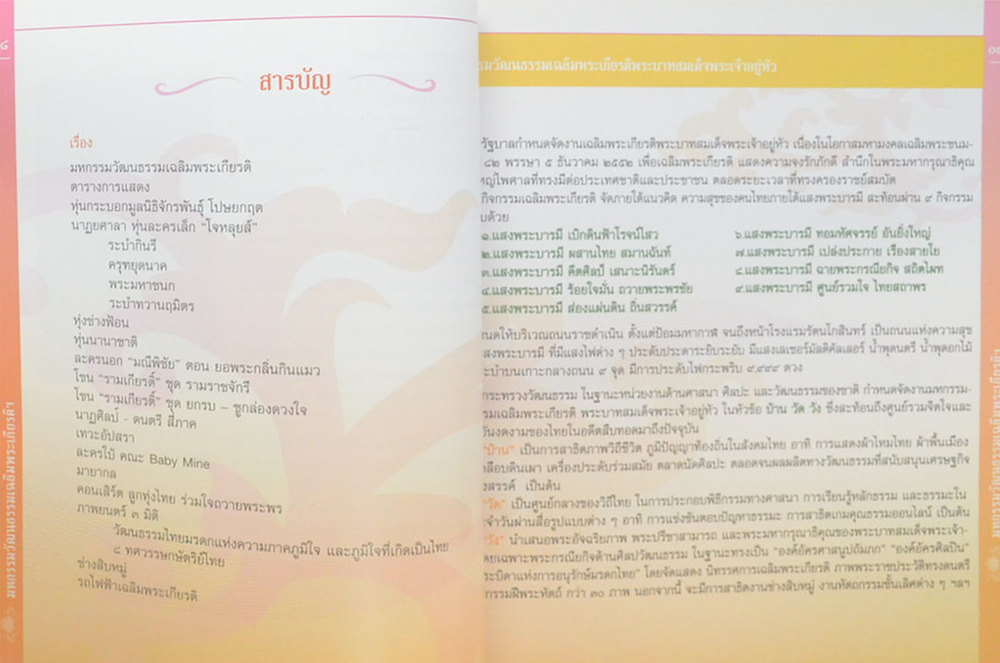 ๘
สารบัญ
เรื่อง
มหกรรมวัฒนธรรมเฉลิมพระเกียรติ
ตารางการแสดง
หุ่นกระบอกมูลนิธิจักรพันธุ์ โปษยกฤต
นาฏยศาลา หุ่นละครเล็ก “โจหลุยส์”
ระบำกินรี
ครุฑยุดนาค
พระมหาชนก
ระบำทวานฤมิตร
หุ่งช่างฟ้อน
หุ่นนานาชาติ
ละครนอก “มณีพิชัย” ตอน ยอพระกลิ่นกินแมว
โขน “รามเกียรติ์” ชุด รามราชจักรี
โขน “รามเกียรติ์” ชุด ยกรบ – ชูกล่องดวงใจ
นาฏศิลป์ - ดนตรี สี่ภาค
เทวะอัปสรา
ละครใบ้ คณะ Baby Mine
มายากล
คอนเสิร์ต ลูกทุ่งไทย ร่วมใจถวายพระพร
ภาพยนตร์ ๓ มิติ
วัฒนธรรมไทยมรดกแห่งความภาคภูมิใจ และภูมิใจที่เกิดเป็นไทย
๘ ทศวรรษกษัตริย์ไทย
ช่างสิบหมู่
รถไฟฟ้าเฉลิมพระเกียรติ
มหกรรมวัฒนธรรมเฉลิมพระเกียรติฯ
รมวัฒนธรรมเฉลิมพระเกียรติพระบาทสมเด็จพระเจ้าอยู่หัว
รัฐบาลกำหนดจัดงานเฉลิมพระเกียรติพระบาทสมเด็จพระเจ้าอยู่หัว เนื่องในโอกาสมหามงคลเฉลิมพระชนม-
๘๒ พรรษา ๕ ธันวาคม ๒๕๕๒ เพื่อเฉลิมพระเกียรติ แสดงความจงรักภักดี สำนึกในพระมหากรุณาธิคุณ
หญ่ไพศาลที่ทรงมีต่อประเทศชาติและประชาชน ตลอดระยะเวลาที่ทรงครองราชย์สมบัติ
กิจกรรมเฉลิมพระเกียรติ จัดภายใต้แนวคิด ความสุขของคนไทยภายใต้แสงพระบารมี สะท้อนผ่าน ๙ กิจกรรม
บด้วย
๑.แสงพระบารมี เบิกดินฟ้าโรจน์ไสว
๒.แสงพระบารมี ผสานไทย สมานฉันท์
๓.แสงพระบารมี คีตศิลป์ เสนาะนิรันดร์
๔.แสงพระบารมี ร้อยใจมั่น ถวายพระพรชัย
๕.แสงพระบารมี ส่องแผ่นดิน ถิ่นสวรรค์
๖.แสงพระบารมี ทอมหัศจรรย์ อันยิ่งใหญ่
๗.แสงพระบารมี เปล่งประกาย เรืองสายใย
๘.แสงพระบารมี ฉายพระกรณียกิจ สถิตไผท
๙.แสงพระบารมี ศูนย์รวมใจ ไทยสถาพร
านดให้บริเวณถนนราชดำเนิน ตั้งแต่ป้อมมหากาฬ จนถึงหน้าโรงแรมรัตนโกสินทร์ เป็นถนนแห่งความสุข
สงพระบารมี ที่มีแสงไฟต่าง ๆ ประดับประดาระยิบระยับ มีแสงเลเซอร์มัลติคัลเลอร์ น้ำพุดนตรี น้ำพุดอกไม้
ะบำบนเกาะกลางถนน ๙ จุด มีการประดับไฟกระพริบ ๙,๙๙๙ ดวง
กระทรวงวัฒนธรรม ในฐานะหน่วยงานด้านศาสนา ศิลปะ และวัฒนธรรมของชาติ กำหนดจัดงานมหกรรม-
รมเฉลิมพระเกียรติ พระบาทสมเด็จพระเจ้าอยู่หัว ในหัวข้อ บ้าน วัด วัง ซึ่งสะท้อนถึงศูนย์รวมจิตใจและ
ันงดงามของไทยในอดีตสืบทอดมาถึงปัจจุบัน
“บ้าน” เป็นการสาธิตภาพวิถีชีวิต ภูมิปัญญาท้องถิ่นในสังคมไทย อาทิ การแสดงผ้าไหมไทย ผ้าพื้นเมือง
คลือบดินเผา เครื่องประดับร่วมสมัย ตลาดนัดศิลปะ ตลอดจนผลผลิตทางวัฒนธรรมที่สนับสนุนเศรษฐกิจ
งสรรค์ เป็นต้น
“วัด” เป็นศูนย์กลางของวิถีไทย ในการประกอบพิธีกรรมทางศาสนา การเรียนรู้หลักธรรม และธรรมะใน
ะจำวันผ่านสื่อรูปแบบต่าง ๆ อาทิ การแข่งขันตอบปัญหาธรรมะ การสาธิตเกมคุณธรรมออนไลน์ เป็นต้น
“วัง” นำเสนอพระอัจฉริยภาพ พระปรีชาสามารถ และพระมหากรุณาธิคุณของพระบาทสมเด็จพระเจ้า-
ดยเฉพาะพระกรณียกิจด้านศิลปวัฒนธรรม ในฐานะทรงเป็น “องค์อัครศาสนูปถัมภก” “องค์อัครศิลปิน”
ระบิดาแห่งการอนุรักษ์มรดกไทย” โดยจัดแสดง นิทรรศการเฉลิมพระเกียรติ ภาพพระราชประวัติทรงดนตรี
กรรมฝีพระหัตถ์ กว่า ๓๐ ภาพ นอกจากนี้ จะมีการสาธิตงานช่างสิบหมู่ งานหัตถกรรมชั้นเลิศต่าง ๆ ฯลฯ